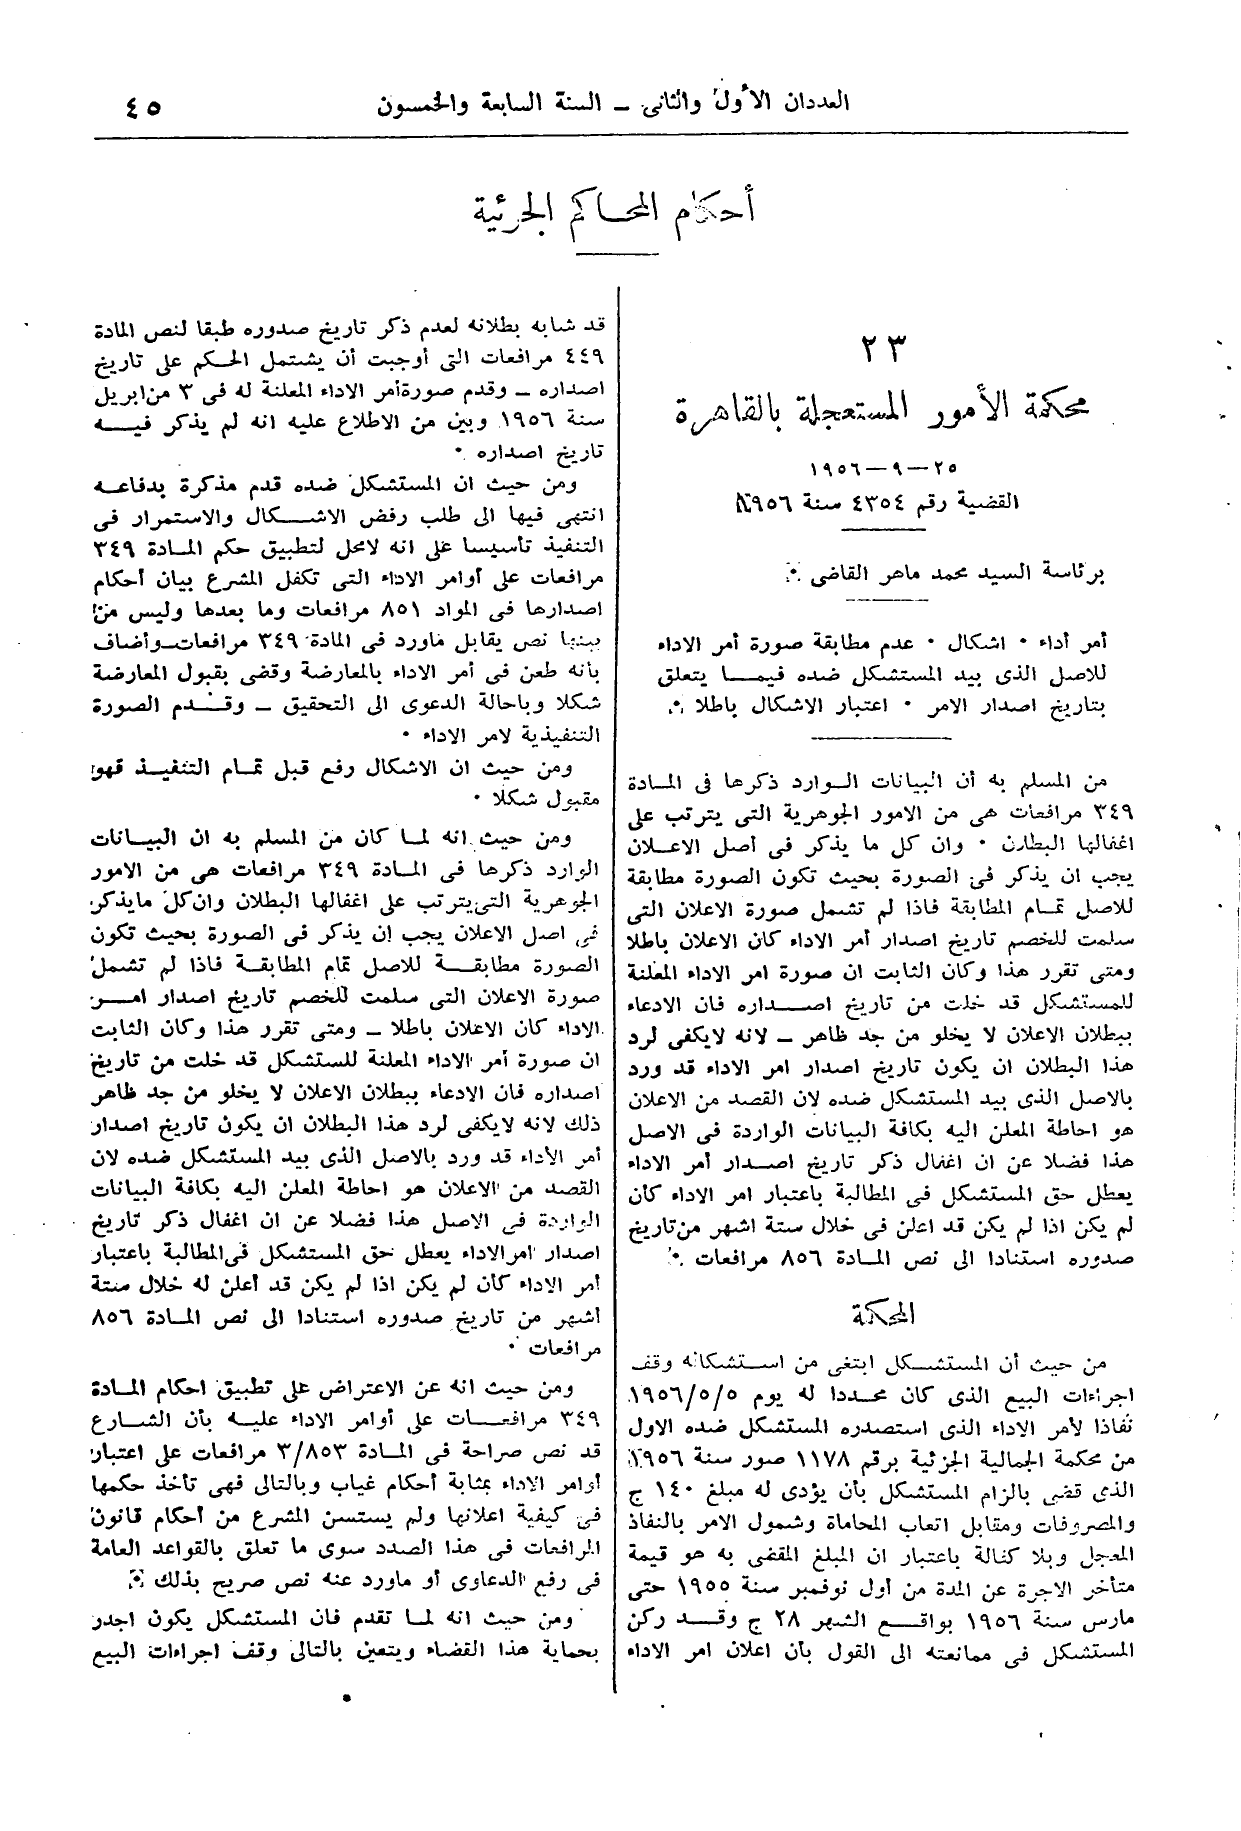 العددان الأول والثانى – السنة السابعة والخمسون
٤٥
أحكام المحاكم الجزئية
٢٣
محكمة الأمور المستعجلة بالقاهرة
٢٥–٩–١٩٥٦
القضية رقم ٤٣٥٤ سنة ١٩٥٦
برئاسة السيد محمد ماهر القاضى .
أمر أداء . اشكال . عدم مطابقة صورة أمر الاداء
للاصل الذى بيد المستشكل ضده فيمـــا يتعلق
بتاريخ اصدار الامر . اعتبار الاشكال باطلا .
من المسلم به أن البيانات الـوارد ذكرها فى المـادة
٣٤٩ مرافعات هى من الامور الجوهرية التى يترتب على
اغفالها البطلان . وان كل ما يذكر فى أصل الاعـلان
يجب ان يذكر فى الصورة بحيث تكون الصورة مطابقة
للاصل تمـام المطابقة فاذا لم تشمل صورة الاعلان التى
سلمت للخصم تاريخ اصدار أمر الاداء كان الاعلان باطلا
ومتى تقرر هذا وكان الثابت ان صورة امر الاداء المعلنة
للمستشكل قد خلت من تاريخ اصــداره فان الادعاء
ببطلان الاعلان لا يخلو من جد ظاهر – لانه لايكفى لرد
هذا البطلان ان يكون تاريخ اصدار امر الاداء قد ورد
بالاصل الذى بيد المستشكل ضده لان القصد من الاعلان
هو احاطة المعلن اليه بكافة البيانات الواردة فى الاصل
هذا فضلا عن ان اغفال ذكر تاريخ اصـدار أمر الاداء
يعطل حق المستشكل فى المطالبة باعتبار امر الاداء كأن
لم يكن اذا لم يكن قد اعلن فى خلال ستة اشهر من تاريخ
صدوره استنادا الى نص المـادة ٨٥٦ مرافعات .
المحكمة
من حيث أن المستشـكل ابتغى من استـشكاله وقف
اجراءات البيع الذى كان محددا له يوم ١٩٥٦/٥/٥
نفاذا لأمر الاداء الذى استصدره المستشكل ضده الاول
من محكمة الجمالية الجزئية برقم ١١٧٨ صور سنة ١٩٥٦
الذى قضى بالزام المستشكل بأن يؤدى له مبلغ ١٤٠ ج
والمصروفات ومقابل اتعاب المحاماة وشمول الامر بالنفاذ
المعجل وبلا كفالة باعتبار ان المبلغ المقضى به هو قيمة
متأخر الاجرة عن المدة من أول نوفمبر سنة ١٩٥٥ حتى
مارس سنة ١٩٥٦ بواقـــع الشهر ٢٨ ج وقـــد ركن
المستشكل فى ممانعته الى القول بأن اعلان امر الاداء
قد شابه بطلانه لعدم ذكر تاريخ صدوره طبقا لنص المادة
٤٤٩ مرافعات التى أوجبت أن يشتمل الحكم على تاريخ
اصداره – وقدم صورة أمر الاداء المعلنة له فى ٣ من ابريل
سنة ١٩٥٦ وبين من الاطلاع عليه انه لم يذكر فيـــه
تاريخ اصداره .
ومن حيث ان المستشكل ضده قدم مذكرة بدفاعـه
انتهى فيها الى طلب رفض الاشــكال والاستمرار فى
التنفيذ تأسيسا على انه لامحل لتطبيق حكم المـادة ٣٤٩
مرافعات على أوامر الاداء التى تكفل المشرع بيان أحكام
اصدارها فى المواد ٨٥١ مرافعات وما بعدها وليس من
بينها نص يقابل ماورد فى المادة ٣٤٩ مرافعات – وأضاف
بأنه طعن فى أمر الاداء بالمعارضة وقضى بقبول المعارضة
شكلا وباحالة الدعوى الى التحقيق – وقـــدم الصورة
التنفيذية لامر الاداء .
ومن حيث ان الاشكال رفع قبل تمـام التنفيـذ فهو
مقبول شكلا .
ومن حيث انه لمـا كان من المسلم به ان البيـانات
الوارد ذكرها فى المـادة ٣٤٩ مرافعات هى من الامور
الجوهرية التى يترتب على اغفالها البطلان وان كل مايذكر
فى اصل الاعلان يجب ان يذكر فى الصورة بحيث تكون
الصورة مطابقـــة للاصل تمام المطابقـة فاذا لم تشمل
صورة الاعلان التى سلمت للخصم تاريخ اصدار امـــر
الاداء كان الاعلان باطلا – ومتى تقرر هذا وكان الثابت
ان صورة أمر الاداء المعلنة للمستشكل قد خلت من تاريخ
اصداره فان الادعاء ببطلان الاعلان لا يخلو من جد ظاهر
ذلك لانه لايكفى لرد هذا البطلان ان يكون تاريخ اصدار
أمر الأداء قد ورد بالاصل الذى بيد المستشكل ضده لان
القصد من الاعلان هو احاطة المعلن اليه بكافة البيانات
الواردة فى الاصل هذا فضلا عن ان اغفال ذكر تاريخ
اصدار امر الاداء يعطل حق المستشكل فى المطالبة باعتبار
أمر الاداء كأن لم يكن اذا لم يكن قد أعلن له خلال ستة
أشهر من تاريخ صدوره استنادا الى نص المـادة ٨٥٦
مرافعات .
ومن حيث انه عن الاعتراض على تطبيق احكام المـادة
٣٤٩ مرافعـــات على أوامر الاداء عليـه بأن الشـارع
قد نص صراحة فى المـادة ٣/٨٥٣ مرافعات على اعتبار
أوامر الاداء بمثابة أحكام غياب وبالتالى فهى تأخذ حكمها
فى كيفية اعلانها ولم يستسن المشرع من أحكام قانون
المرافعات فى هذا الصدد سوى ما تعلق بالقواعد العامة
فى رفع الدعاوى أو ماورد عنه نص صريح بذلك .
ومن حيث انه لمـا تقدم فان المستشكل يكون اجدر
بحماية هذا القضاء ويتعين بالتالى وقف اجراءات البيع